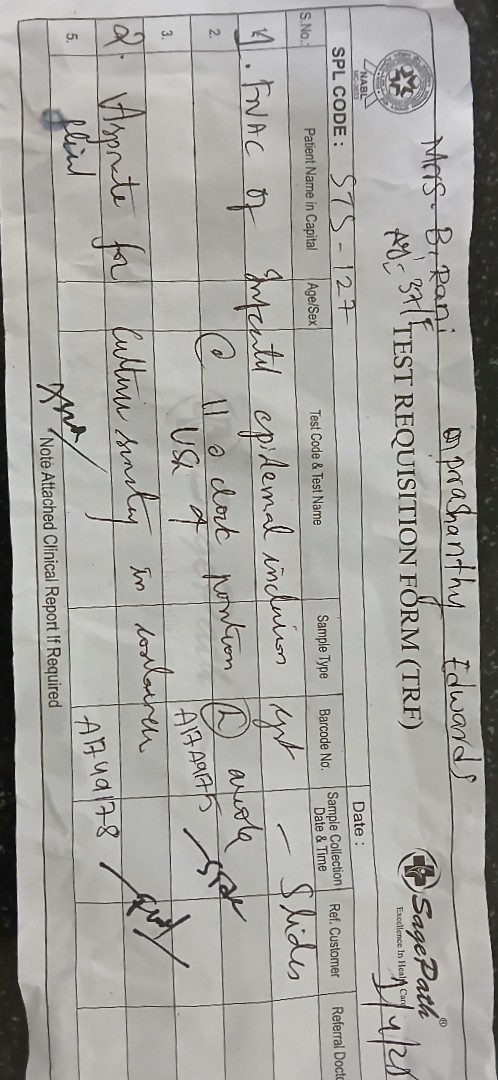 Mrs. B. Rani
Dr prashanthy Edwards
37/F
TEST REQUISITION FORM (TRF)
SagePath®
Excellence In Health Care
NABL
SPL CODE : STS - 127
Date :
S.No.: Patient Name in Capital Age/Sex Test Code & Test Name Sample Type Barcode No. Sample Collection Date & Time Ref. Customer Referral Doct
1. FNAC of epidermal inclusion cyst — Slides
2. @ 11 o clock position areola
3. USG A1749175
2. Aspirate for Culture in container
5. fluid A1749178
Note Attached Clinical Report If Required